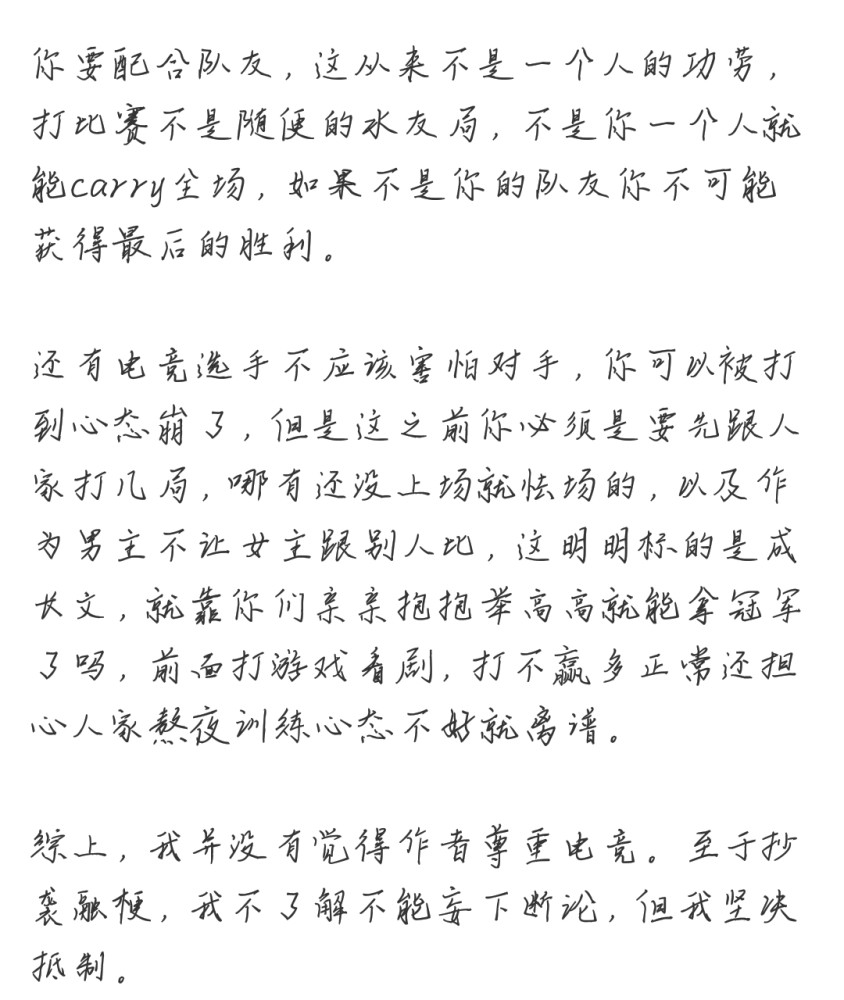 你要配合队友，这从来不是一个人的功劳，
打比赛不是随便的水友局，不是你一个人就
能carry全场，如果不是你的队友你不可能
获得最后的胜利。
还有电竞选手不应该害怕对手，你可以被打
到心态崩了，但是这之前你必须是要先跟人
家打几局，哪有还没上场就怯场的，以及作
为男主不让女主跟别人比，这明明标的是成
长文，就靠你们亲亲抱抱举高高就能拿冠军
了吗，前面打游戏看剧，打不赢多正常还担
心人家熬夜训练心态不好就离谱。
综上，我并没有觉得作者尊重电竞。至于抄
袭融梗，我不了解不能妄下断论，但我坚决
抵制。